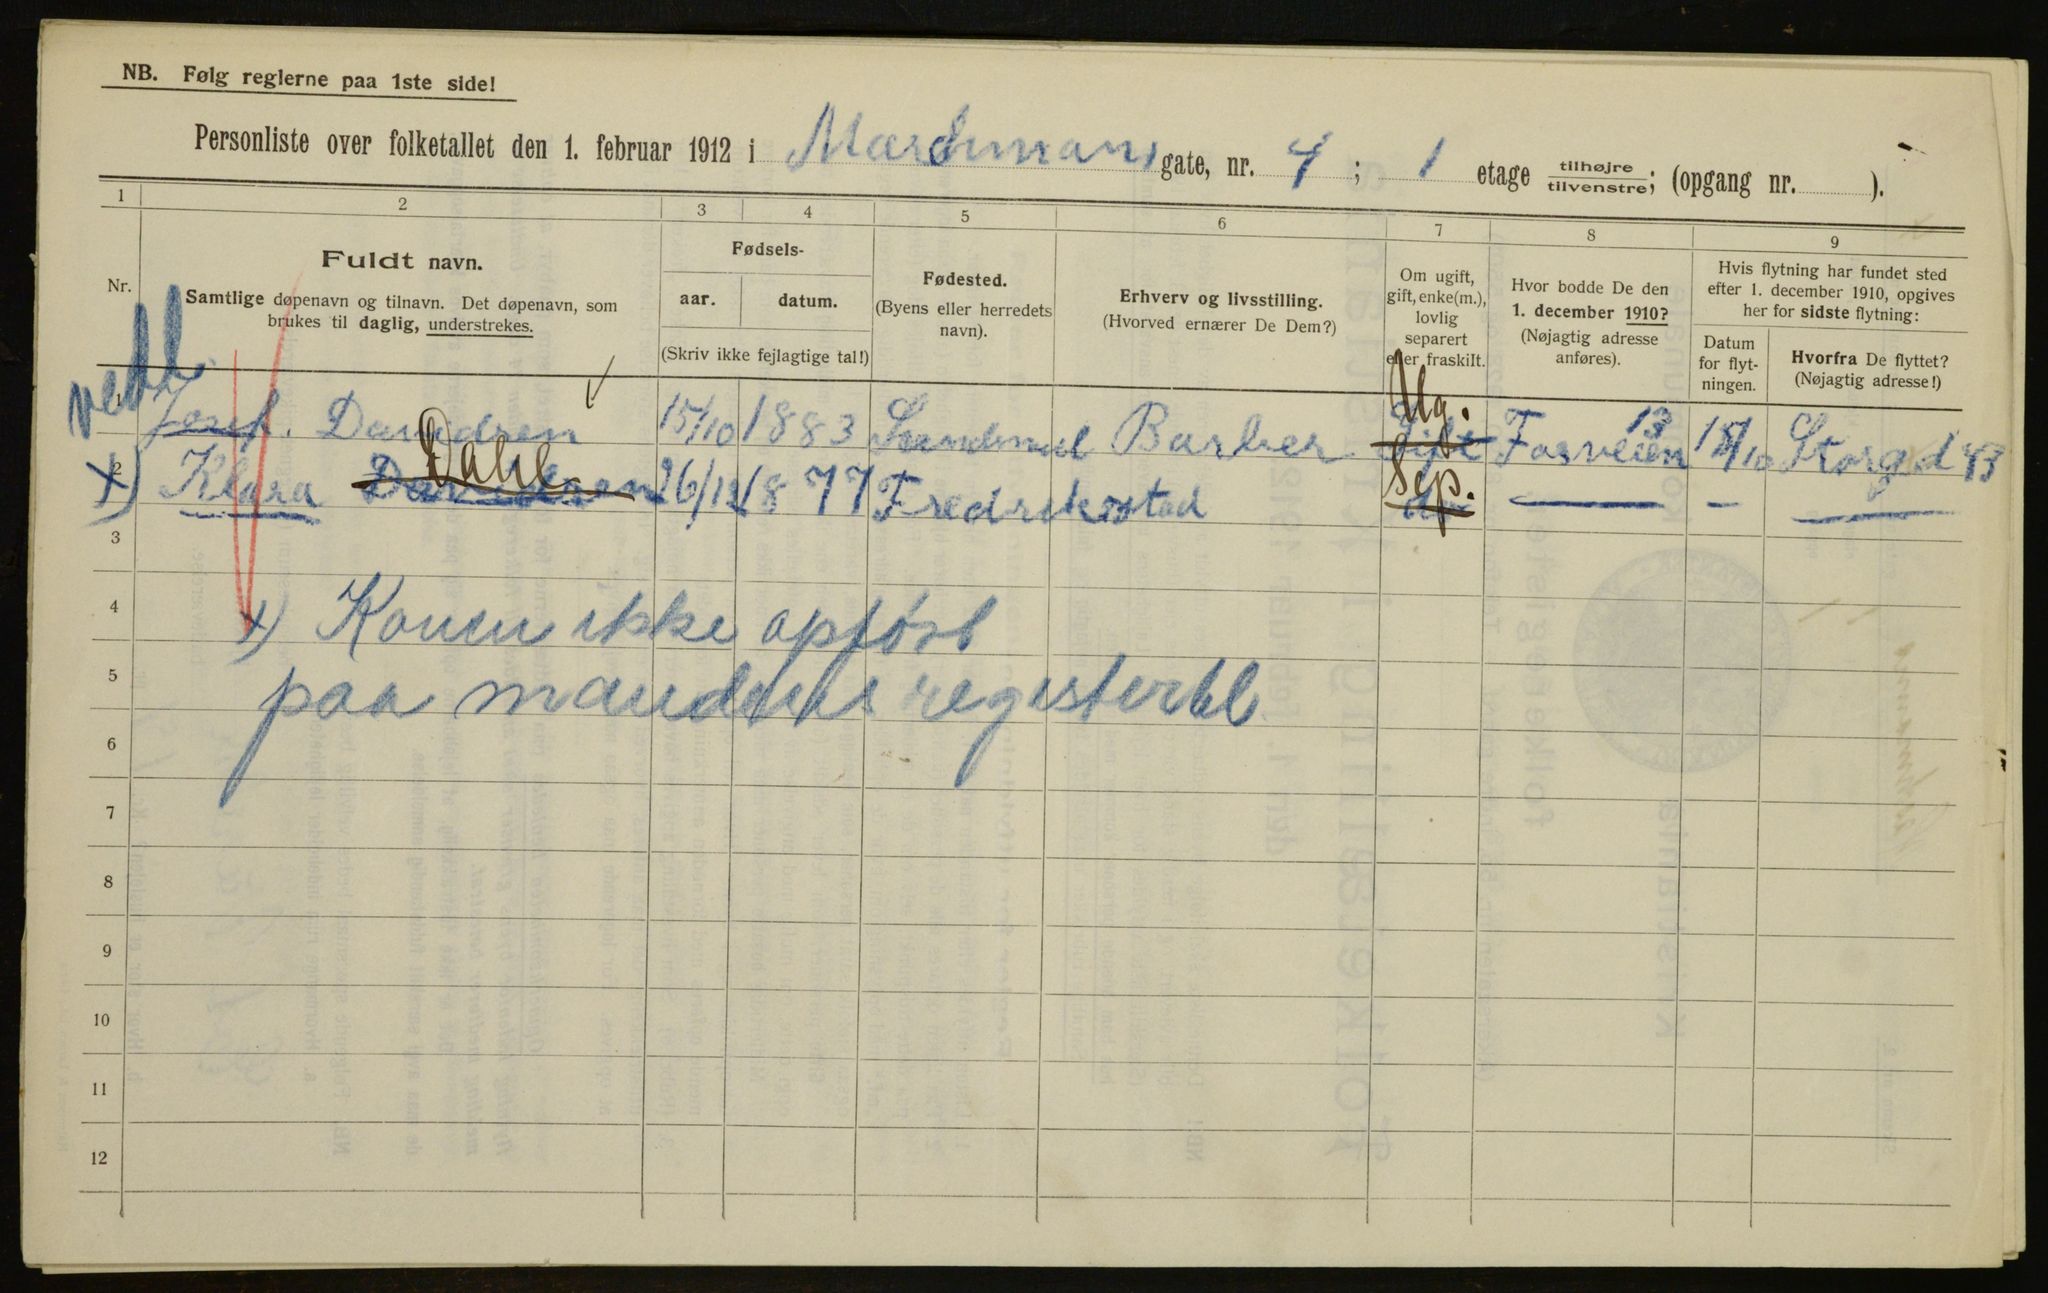 NB. Følg reglerne paa 1ste side!
Personliste over folketallet den 1. februar 1912 i Marckmans gate, nr. 4; 1 etage tilhøjre/tilvenstre; (opgang nr. ).
1 2 3 4 5 6 7 8 9
Nr.
Fuldt navn.
Samtlige døpenavn og tilnavn. Det døpenavn, som
brukes til daglig, understrekes.
Fødsels-
aar. datum.
(Skriv ikke fejlagtige tal!)
Fødested.
(Byens eller herredets
navn).
Erhverv og livsstilling.
(Hvorved ernærer De Dem?)
Om ugift,
gift, enke(m.),
lovlig
separert
eller fraskilt.
Hvor bodde De den
1. december 1910?
(Nøjagtig adresse
anføres).
Hvis flytning har fundet sted
efter 1. december 1910, opgives
her for sidste flytning:
Datum
for flyt-
ningen.
Hvorfra De flyttet?
(Nøjagtig adresse!)
vedl.
1 Josef. Davidsen 15/10 1883 Barber Gift Ug. Fosveien 13 15/10 Storgd 43
2 x) Klara Davidsen Dahl 26/12 1877 Fredrikstad do Sep. — — —
3
4 x) Konen ikke opført
5 paa mandens registerbl
6
7
8
9
10
11
12